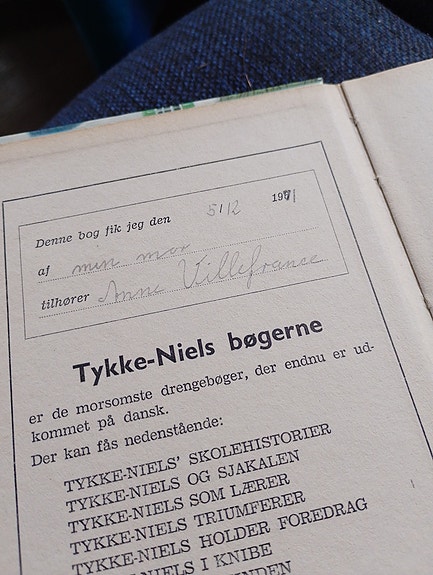 Denne bog fik jeg den 5/12 1971
af min mor
tilhører Anne Villefrance
Tykke-Niels bøgerne
er de morsomste drengebøger, der endnu er ud-
kommet på dansk.
Der kan fås nedenstående:
TYKKE-NIELS' SKOLEHISTORIER
TYKKE-NIELS OG SJAKALEN
TYKKE-NIELS SOM LÆRER
TYKKE-NIELS TRIUMFERER
TYKKE-NIELS HOLDER FOREDRAG
NIELS I KNIBE